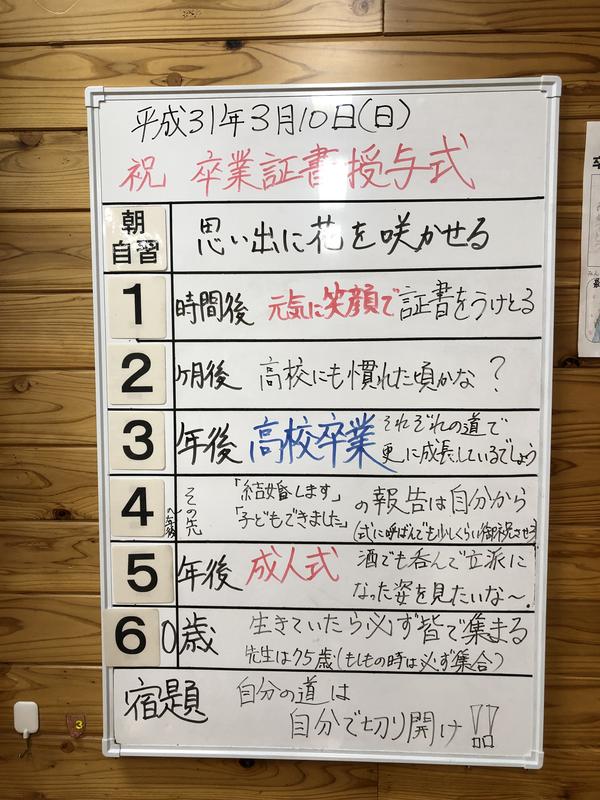 平成31年3月10日(日)
祝 卒業証書授与式
朝自習 思い出に花を咲かせる
1 時間後 元気に笑顔で証書をうけとる
2 ヶ月後 高校にも慣れた頃かな?
3 年後 高校卒業 それぞれの道で
更に成長しているでしょう
4 〜年後 その先 「結婚します」
「子どもできました」 の報告は自分から
(式に呼んでも少しくらい御祝させろ
5 年後 成人式 酒でも呑んで立派に
なった姿を見たいな〜。
60歳 生きていたら必ず皆で集まる
先生は75歳(もしもの時は必ず集合)
宿題 自分の道は
自分で切り開け!!
3